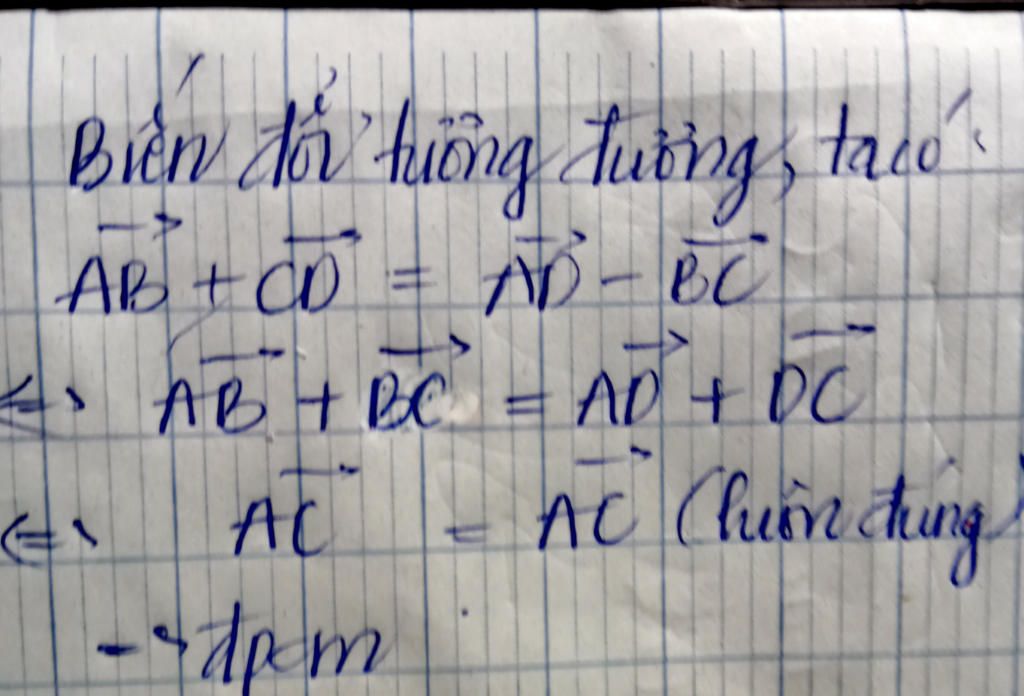 Biến đổi tương đương, ta có:
$\overrightarrow{AB} + \overrightarrow{CD} = \overrightarrow{AD} - \overrightarrow{BC}$
$\Leftrightarrow \overrightarrow{AB} + \overrightarrow{BC} = \overrightarrow{AD} + \overrightarrow{DC}$
$\Leftrightarrow \overrightarrow{AC} = \overrightarrow{AC}$ (luôn đúng)
→ đpcm